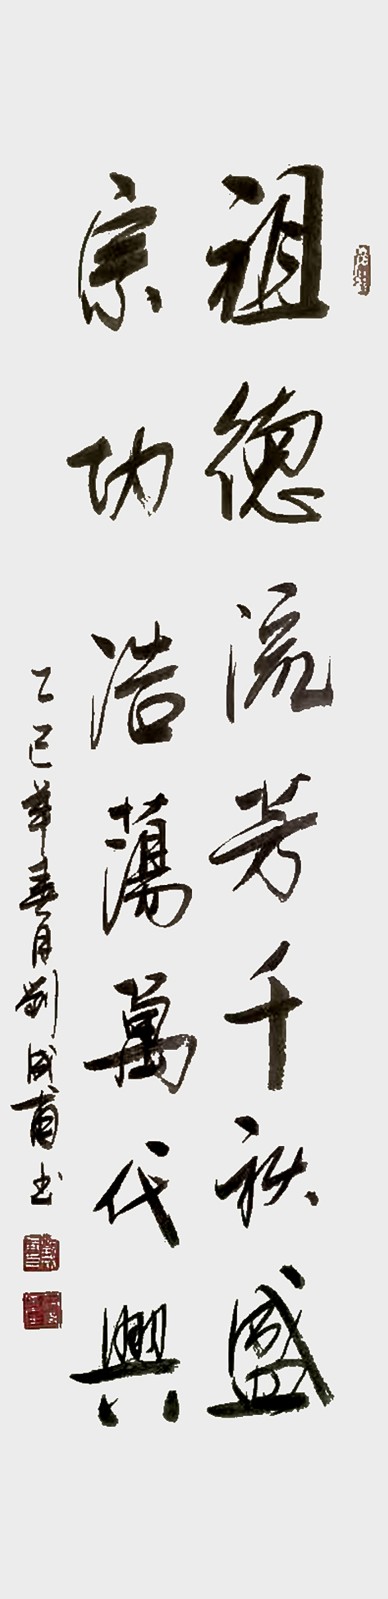 祖德流芳千秋盛
宗功浩蕩萬代興
乙巳年春月劉成有书